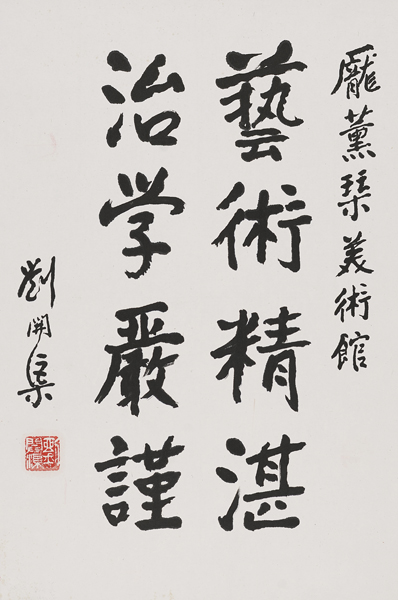 龐薰琹美術館
藝術精湛
治学嚴謹
劉開渠